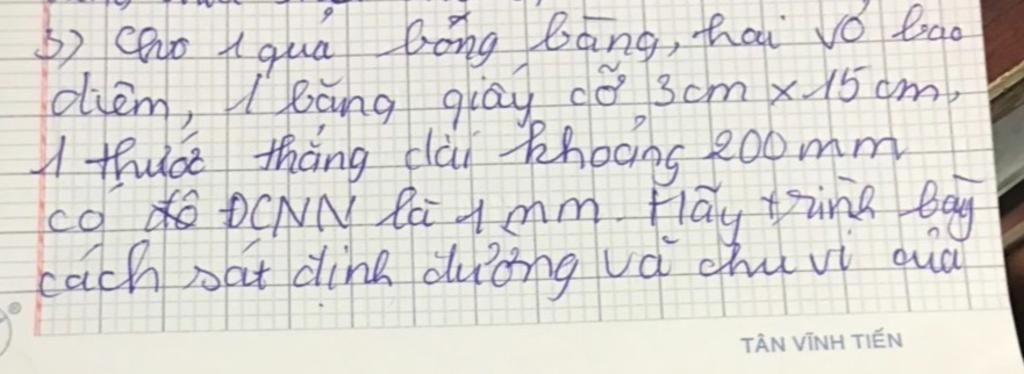 3) Cho 1 quả bống bàng, hai vỏ bao
diêm, 1 băng giấy cỡ 3cm x 15 cm,
1 thước thẳng dài khoảng 200mm
có độ ĐCNN là 1 mm. Hãy trình bày
cách sát định đường và chu vi của
TÂN VĨNH TIẾN